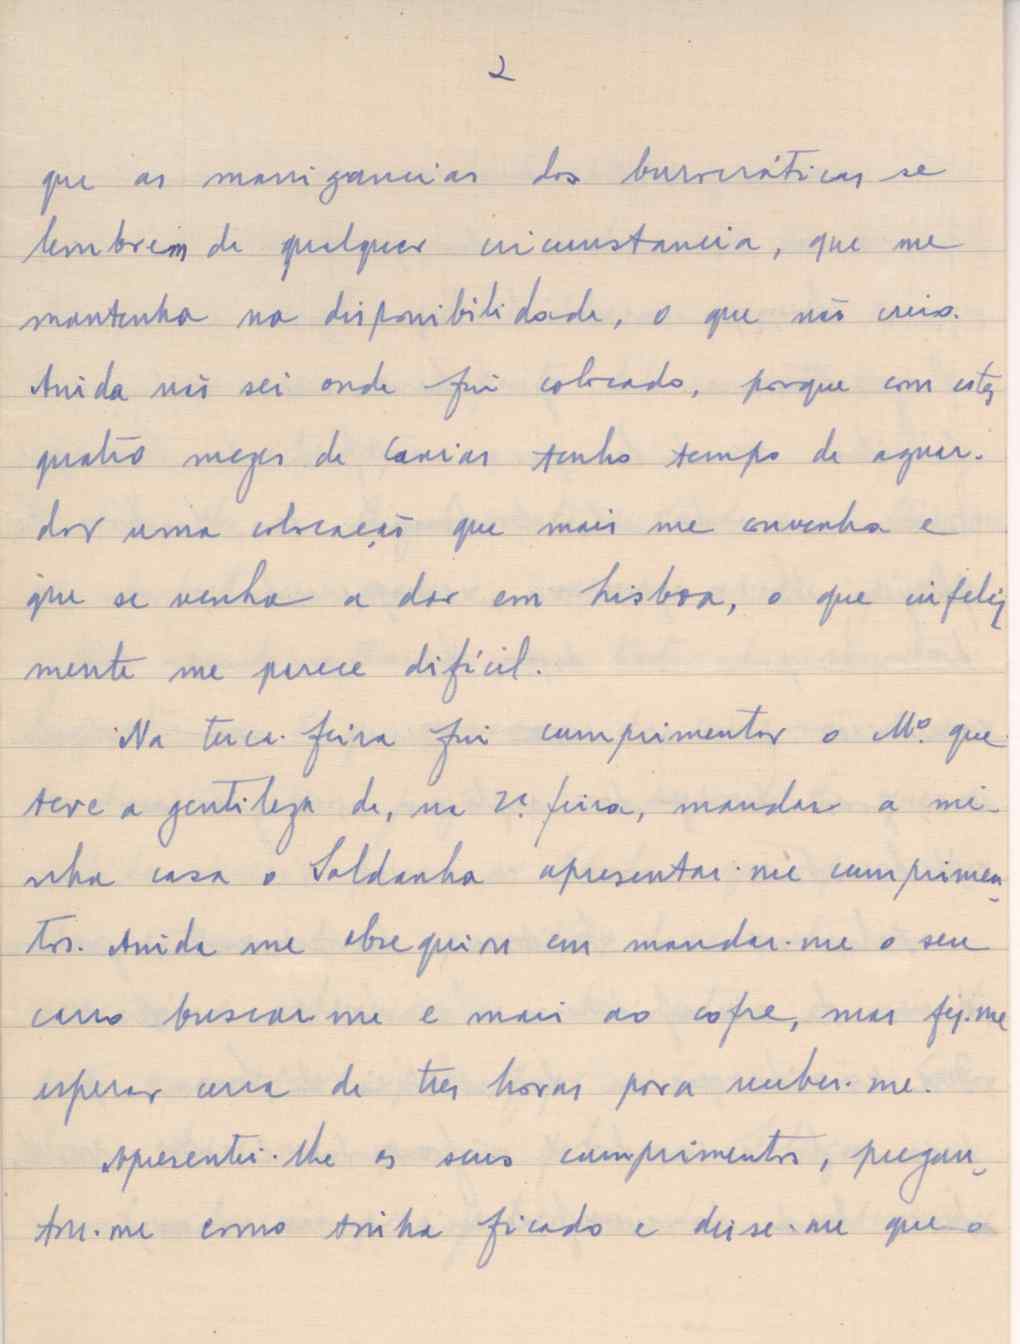 2
que as manigancias dos burocráticas se
lembrem de qualquer circunstancia, que me
mantenha na disponibilidade, o que não creio.
Ainda não sei onde fui colocado, porque com estes
quatro mezes de Caxias tenho tempo de aguar-
dar uma colocação que mais me convenha e
que se venha a dar em Lisboa, o que infeliz
mente me parece difícil.
Na terca-feira fui cumprimentar o Mº. que
teve a gentileza de, na 2ª. feira, mandar a mi-
nha casa o Saldanha apresentar-me cumprimen-
tos. Ainda me obsequiou em mandar-me o seu
carro buscar me e mais ao cofre, mas fez-me
esperar cerca de tres horas para receber-me.
Apresentei-lhe os seus cumprimentos, pregun-
tou-me como tinha ficado e disse-me que o